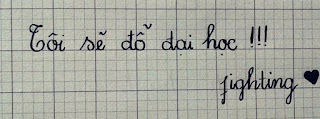 Tôi sẽ đỗ đại học !!!
fighting ♥